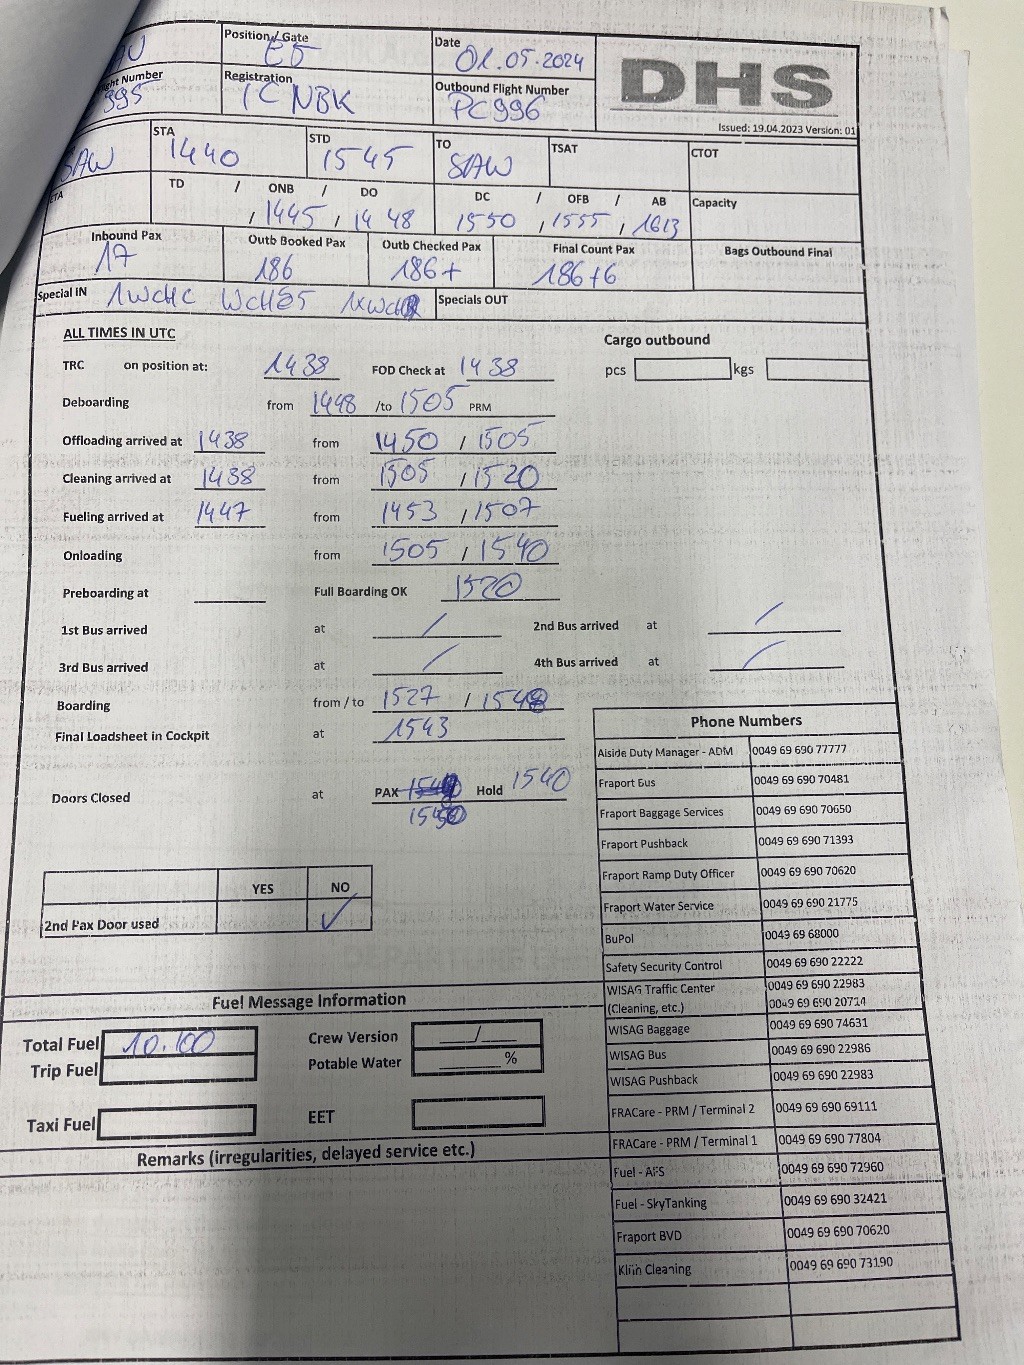 Position / Gate E5 Date 01.05.2024 DHS
Number 995 Registration TC NBK Outbound Flight Number PC996
Issued: 19.04.2023 Version: 01
SAW STA 1440 STD 1545 TO SAW TSAT CTOT
TD / ONB / DO DC / OFB / AB Capacity
, 1445 , 1448 1550 , 1555 , 1613
Inbound Pax Outb Booked Pax Outb Checked Pax Final Count Pax Bags Outbound Final
186 186+ 186+6
Special IN 1WCHC Specials OUT
ALL TIMES IN UTC Cargo outbound
TRC on position at: 1438 FOD Check at 1438 pcs kgs
Deboarding from 1448 /to 1505 PRM
Offloading arrived at 1438 from 1450 / 1505
Cleaning arrived at 1438 from 1505 / 1520
Fueling arrived at 1447 from 1453 / 1507
Onloading from 1505 / 1540
Preboarding at Full Boarding OK 1520
1st Bus arrived at / 2nd Bus arrived at /
3rd Bus arrived at / 4th Bus arrived at /
Boarding from / to 1527 /
Final Loadsheet in Cockpit at 1543
Doors Closed at PAX Hold 1540
YES NO
2nd Pax Door used ✓
Fuel Message Information
Total Fuel 10.100 Crew Version /
Trip Fuel Potable Water %
Taxi Fuel EET
Remarks (irregularities, delayed service etc.)
Phone Numbers
Aiside Duty Manager - ADM 0049 69 690 77777
Fraport Bus 0049 69 690 70481
Fraport Baggage Services 0049 69 690 70650
Fraport Pushback 0049 69 690 71393
Fraport Ramp Duty Officer 0049 69 690 70620
Fraport Water Service 0049 69 690 21775
BuPol 0049 69 68000
Safety Security Control 0049 69 690 22222
WISAG Traffic Center 0049 69 690 22983
(Cleaning, etc.) 0049 69 690 20714
WISAG Baggage 0049 69 690 74631
WISAG Bus 0049 69 690 22986
WISAG Pushback 0049 69 690 22983
FRACare - PRM / Terminal 2 0049 69 690 69111
FRACare - PRM / Terminal 1 0049 69 690 77804
Fuel - AFS 0049 69 690 72960
Fuel - SkyTanking 0049 69 690 32421
Fraport BVD 0049 69 690 70620
Klüh Cleaning 0049 69 690 73190